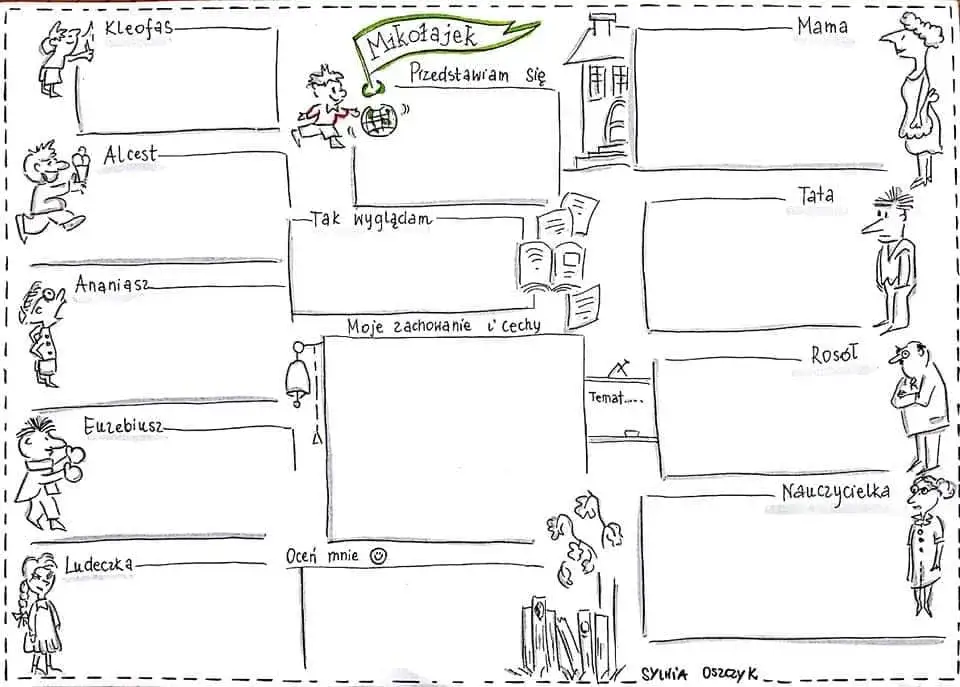 Kleofas
Mikołajek
Przedstawiam się
Mama
Alcest
Tak wyglądam
Tata
Ananiasz
Moje zachowanie i cechy
Rosół
Temat.....
Euzebiusz
Nauczycielka
Ludeczka
Oceń mnie
SYLWIA OSZCZYK